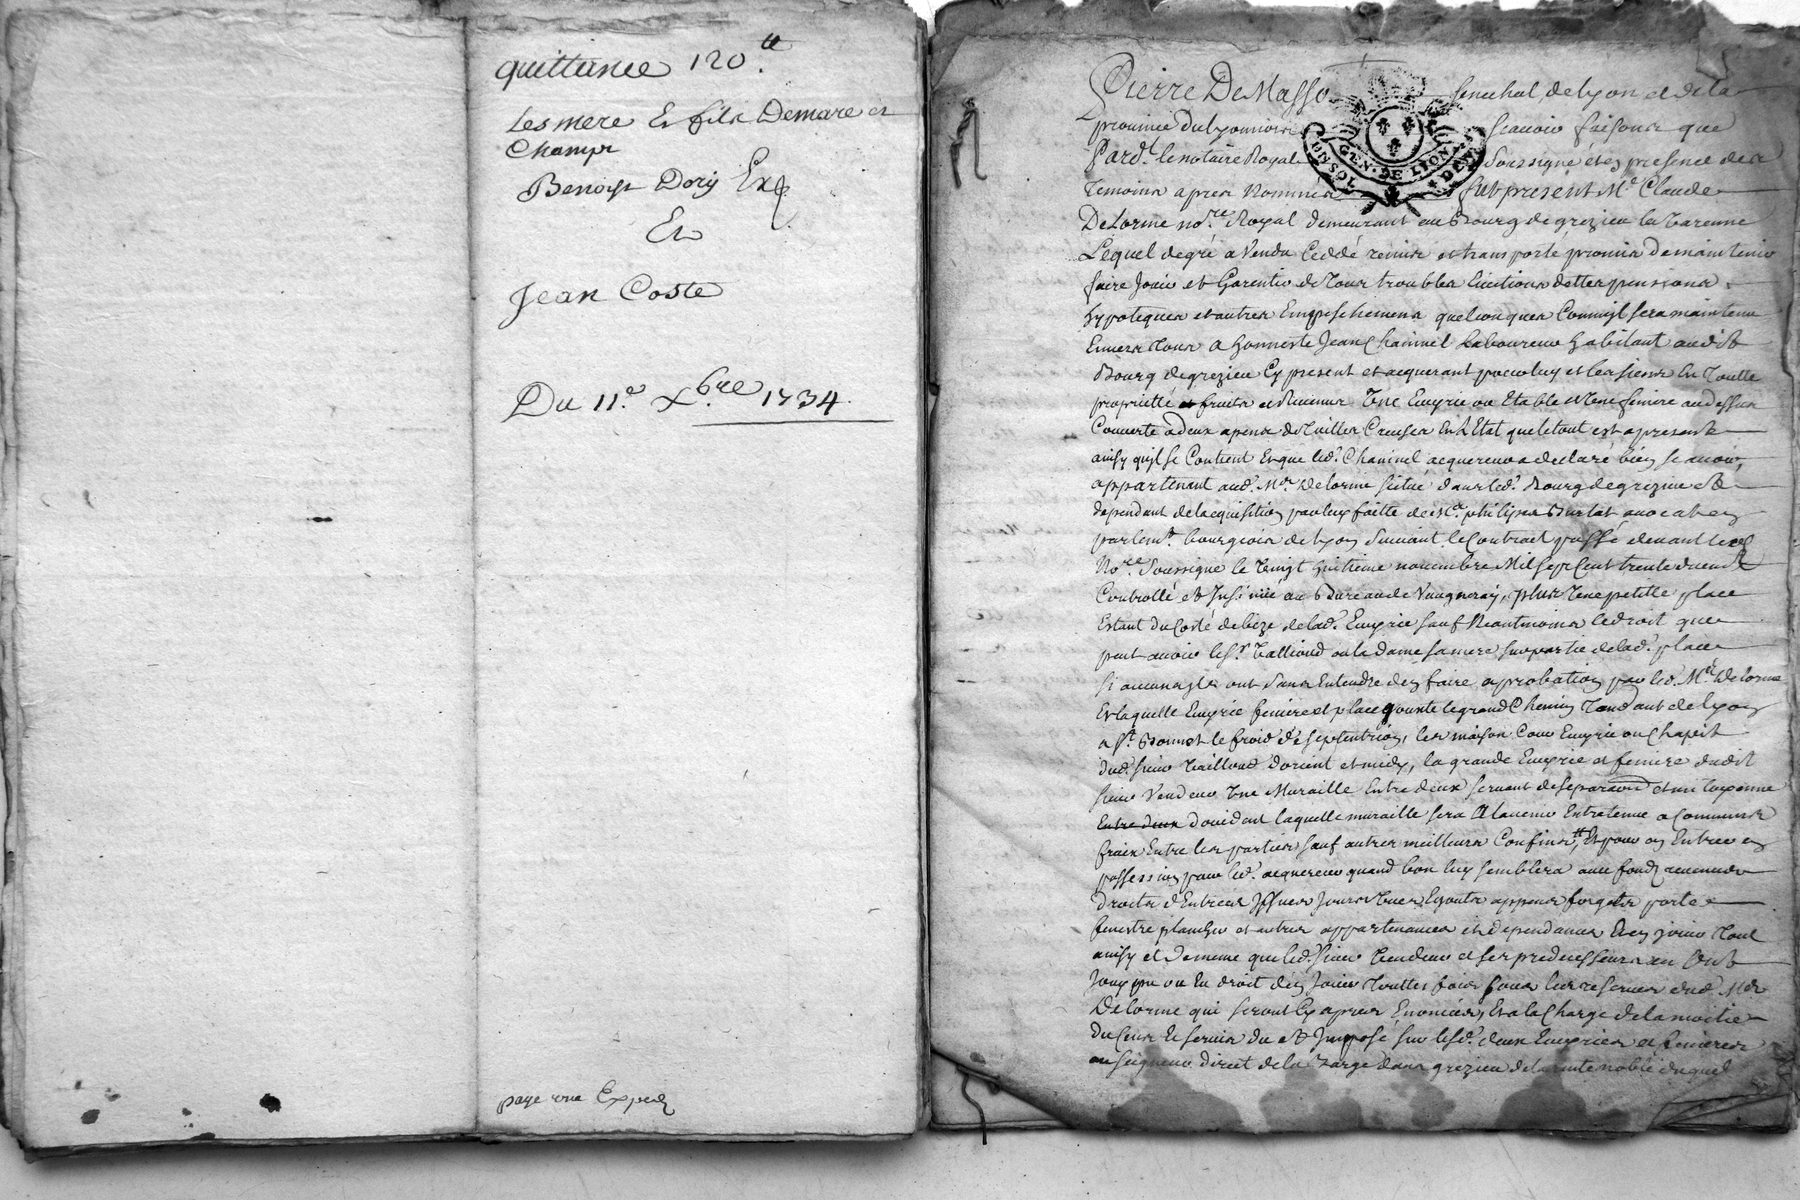 quittance 120.tt
Les mere Et fils Demare et
Champt
Benoist Dory Exp
Et
Jean Coste
Du 11.e Xbre 1734.
paye une Exped
Pierre De Masso Senechal de Lyon et de la
province du Lyonnois Scavoir faisons que
Pard.t le notaire Royal Soussigné et en presence des
temoins apres Nommés fut present M.e Claude
DeLorme no.re Royal demeurant au Bourg de grezieu la Varenne
Lequel de gré a Vendu Ceddé remis et transporté promis de maintenir
faire Jouir et Garentir de Tous troubles Evictions dettes pensions
hypoteques et autres Empeschemens quelconques
Envers Tous a honneste Jean Chaninel Laboureur habitant audit
Bourg de grezieu Cy present et acquerant pour luy et les siens En Toutte
proprietté fruits et Revenus Une Ecuyrie ou Etable et Une feniere au dessus
Couverte a deux apens de Tuilles Creuses En L'Etat que le tout est a present
ainsy qu'il se Contient Et que led.t Chaninel acquereur a declaré bien scavoir,
appartenant aud.t M.e Delorme situé dans led.t Bourg de grezieu Et
dependant de l'acquisition par luy faitte de M.e philipes Burtat avocat en
parlem.t bourgeois de Lyon Suivant le Contract passé devant le
No.re Soussigné le Vingt huitieme novembre Mil sept Cent trente
Controllé et Insinüé au Bureau de Vaugneray, plus Une petitte place
Estant du Costé de bize de lad.e Ecuyrie sauf Neantmoins le droit que
peut avoir le S.r Tailloud ou la Dame sa mere sur partie de lad.e place
si aucuns ils ont sans Entendre d'en faire aprobation par led.t M.e Delorme
Et laquelle Ecuyrie feniere et place jouxte le grand Chemin Tendant de Lyon
a S.t Bonnet le froid de septentrion, les maison Cour Ecuyrie ou Chapit
dud.t sieur Tailloud d'orient et midy, la grande Ecuyrie et feniere dudit
sieur Vendeur Une Muraille Entre deux servant de separation et mitoyenne
Entre deux d'occident laquelle muraille sera a l'avenir Entretenue a Communs
fraix Entre les parties sauf autres meilleurs Confins, Et pour en Entrer en
possession par led.t acquereur quand bon luy semblera avec fonds
droits d'Entrées Issues Jours Vues Egouts appens forgets porte
fenestre plancher et autres appartenances et dependances Et en jouir Tout
ainsy et de meme que led.t sieur Vendeur et ses predecesseurs en Ont
Jouy pu ou Eu droit d'en Jouir Touttes fois sous les reserves dud.t M.e
Delorme qui seront Cy apres Enoncées, Et a la Charge de la moitié
du Cens Et servis du Et Imposé sur lesd.es deux Ecuyries et fenieres
au seigneur direct de la Barge dans grezieu de la rente noble duquel
GEN. DE LION
UN SOL